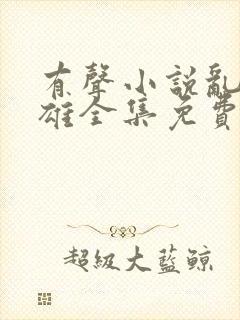 有聲小說亂
雄全集免費
超級大藍鯨